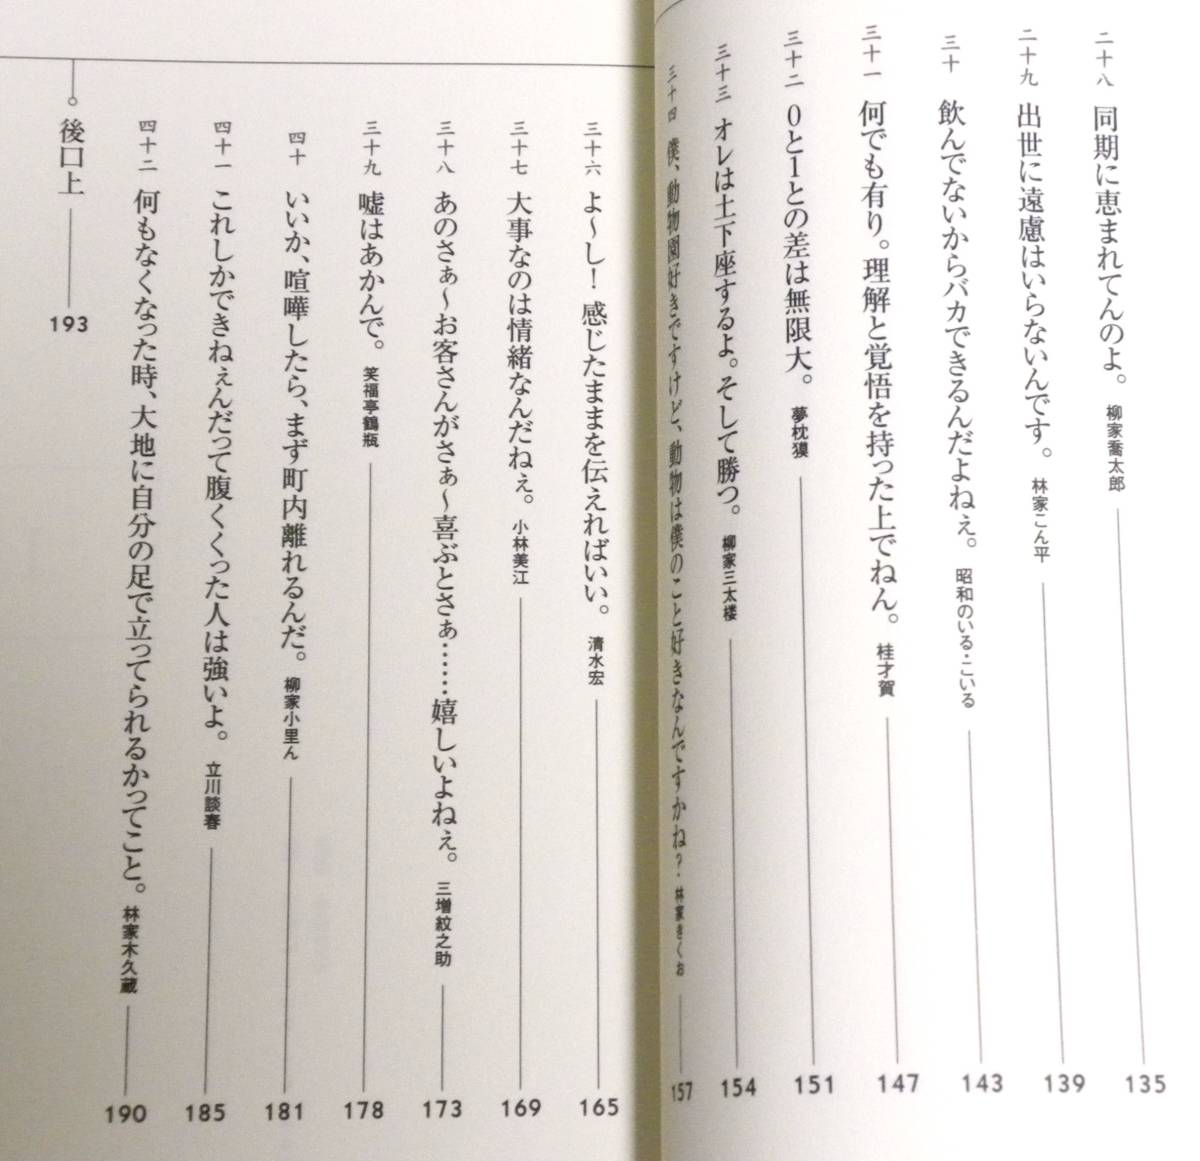 二十八 同期に恵まれてんのよ。 柳家喬太郎 135
二十九 出世に遠慮はいらないんです。 林家こん平 139
三十 飲んでないからバカできるんだよねぇ。 昭和のいる・こいる 143
三十一 何でも有り。理解と覚悟を持った上でねん。 桂才賀 147
三十二 0と1との差は無限大。 夢枕獏 151
三十三 オレは土下座するよ。そして勝つ。 柳家三太楼 154
三十四 僕、動物園好きですけど、動物は僕のこと好きなんですかね? 林家きくお 157
三十六 よ〜し! 感じたままを伝えればいい。 清水宏 165
三十七 大事なのは情緒なんだねぇ。 小林美江 169
三十八 あのさぁ〜お客さんがさぁ〜喜ぶとさぁ……嬉しいよねぇ。 三増紋之助 173
三十九 嘘はあかんで。 笑福亭鶴瓶 178
四十 いいか、喧嘩したら、まず町内離れるんだ。 柳家小里ん 181
四十一 これしかできねぇんだって腹くくった人は強いよ。 立川談春 185
四十二 何もなくなった時、大地に自分の足で立ってられるかってこと。 林家木久蔵 190
後口上 193